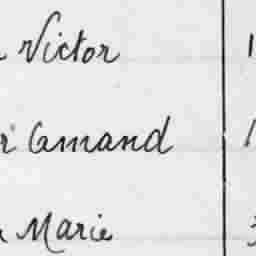 Victor 1
r Amand 1
Marie 3